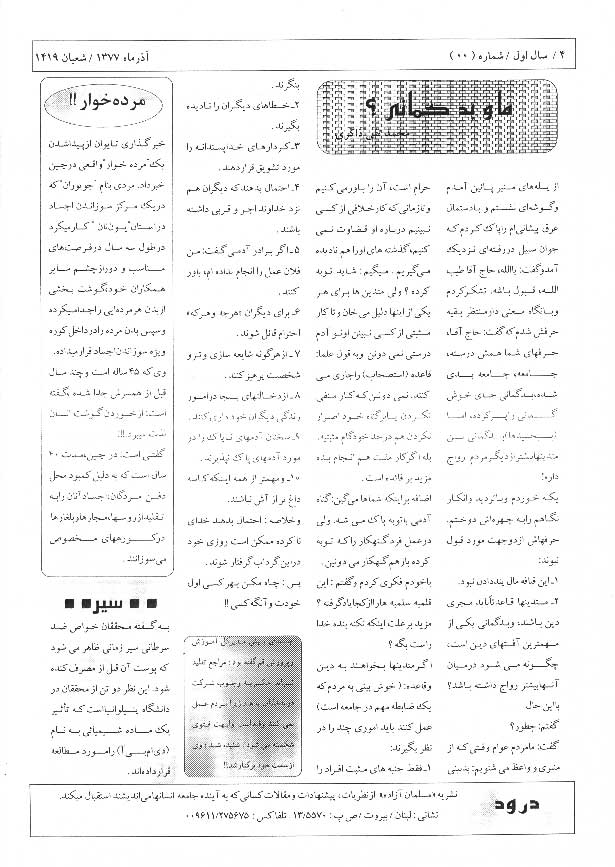 ۴ / سال اول / شماره (۰۰)
آذر ماه ۱۳۷۷ / شعبان ۱۴۱۹
ما و بد گمانی ؟
محمد تقی ذاکری
از پله‌های منبر پائین آمدم
وگوشه‌ای نشستم و بادستمال
عرق پیشانی‌ام را پاک کردم که
جوان سبیل دررفته‌ای نزدیک
آمدوگفت: یاالله، حاج آقا طیب
الله، قبول باشه. تشکرکردم
وبانگاه سعنی دارمنتظر بقیه
حرفش شدم که گفت: حاج آقا،
حرفهای شما همش درسته،
جامعه، جامعه بدی
شده، بدگمانی جدی خوش
گمانی را پرکرده، اما
بدگمانی بین
متدینهابیشتر از دیگر مردم رواج
داره!
یکه خوردم وباتردید وانکار
نگاهم رابه چهره‌اش دوختم.
حرفهاش ازدوجهت مورد قبول
نبود:
۱ـ این قیافه مال پنددادن نبود.
۲ـ متدینها قاعدتاًباید مجری
دین باشند، وبدگمانی یکی از
مهمترین آفتهای دین است،
چگونه می شود درمیان
آنهابیشتر رواج داشته باشد؟
بااین حال
گفتم: چطور؟
گفت: مامردم عوام وقتی که از
منبری و واعظ می شنویم: بدبینی
حرام است، آن را باورمی‌کنیم
وتازمانی که کارخلافی از کسی
نبینیم درباره او قضاوت نمی
کنیم، گذشته های اوراهم نادیده
می‌گیریم . میگیم : شاید توبه
کرده ؟ ولی متدین ها برای هر
یکی از اینها دلیل می خان و تا کار
مثبتی از کسی نبینن اونو آدم
درستی نمی دونین وبه قول علما:
قاعده (استصحاب) راجاری می
کنند. نمی دونن که کار منفی
نکردن یابرگناه خود اصرار
نکردن هم درحد خودگام مثبتیه.
بله اگرکار مثبت هم انجام بده
مزید بر فائده است.
اضافه براینکه شماها می‌گین: گناه
آدمی باتوبه پاک می شه. ولی
درعمل فرد گنهکار راکه توبه
کرده بازهم گهنکار می دونین.
باخودم فکری کردم وگفتم : این
قلمبه سلمبه هارا از کجا یادگرفته ؟
مزید بر علت اینکه نکنه بنده خدا
راست بگه ؟
اگرمتدینها بخواهند به دین
وقاعده: ( خوش بینی به مردم که
یک ضابطه مهم در جامعه است)
عمل کنند باید اموری چند را در
نظر بگیرند:
۱ـ فقط جنبه های مثبت افراد را
بنگرند.
۲ـ خطاهای دیگران را نادیده
بگیرند.
۳ـ کردارهای خداپسندانه را
مورد تشویق قراردهند.
۴ـ احتمال بدهند که دیگران هم
نزد خداوند اجر و قربی داشته
باشند.
۵ـ اگر برادر آدمی گفت: من
فلان عمل را انجام نداده ام، باور
کنند.
۶ـ برای دیگران «هرچه وهرکه»
احترام قائل شوند.
۷ـ از هرگونه شایعه سازی وترور
شخصیت پرهیز کنند.
۸ـ از دخالتهای بیجا درامور
زندگی دیگران خود داری کنند.
۹ـ سخنان آدمهای ناپاک را در
مورد آدمهای پاک نپذیرند.
۱۰ـ ومهمتر از همه اینکه کاسه
داغ تر از آش نباشند.
وخلاصه : احتمال بدهند خدای
نا کرده ممکن است روزی خود
دراین گرداب گرفتار شوند.
پس : چاه مکن بهرکسی اول
خودت و آنگه کسی !!
آموزش
گفته بود: مراجع تقلید
وجوب شرکت
مردم عمل
فتوی
شکسته می شود! شنیده شد: وی
ازسمت خود برکنارشد!!
مرده خوار !!
خبرگذاری تایوان از پیداشدن
یک "مرده خوار" واقعی در چین
خبرداد. مردی بنام "جویوران" که
دریک مرکز سوزاندن اجساد
دراستان "یون‌نان" کارمیکرد
درطول سه سال درفرصت‌های
مناسب و دورازچشم سایر
همکاران خودگوشت بخشی
از بدن هرمرده‌ایی راجدامیکرده
وسپس بدن مرده رادرداخل کوره
ویژه سوزاندن اجساد قرار میداده.
وی که ۴۵ ساله است وچند سال
قبل از همسرش جدا شده، گفته
است: ازخوردن گوشت انسان
لذت میبرد !!
گفتنی است: درچین، مدت ۴۰
سال است که به دلیل کمبود محل
دفن مردگان، جسد آنان رابه
تقلید از روسها، مجارها و بلغارها
درکوره‌های مخصوص
می سوزانند.
سیر
به گفته محققان خواص ضد
سرطانی سیر زمانی ظاهر می شود
که پوست آن قبل از مصرف کنده
شود. این نظر دو تن از محققان در
دانشگاه پنسیلوانیا است که تأثیر
یک ماده شیمیائی به نام
(دی‌ام‌بی‌آ) را مورد مطالعه
قرار داده‌اند.
درود
نشریه «مسلمان آزاده» از نظریات، پیشنهادات و مقالات کسانی که به آینده جامعه انسانها می‌اندیشند استقبال میکند.
نشانی : لبنان / بیروت / ص پ : ۱۳/۵۵۷۰ تلفاکس : ۰۰۹۶۱۱/۲۷۵۶۷۵